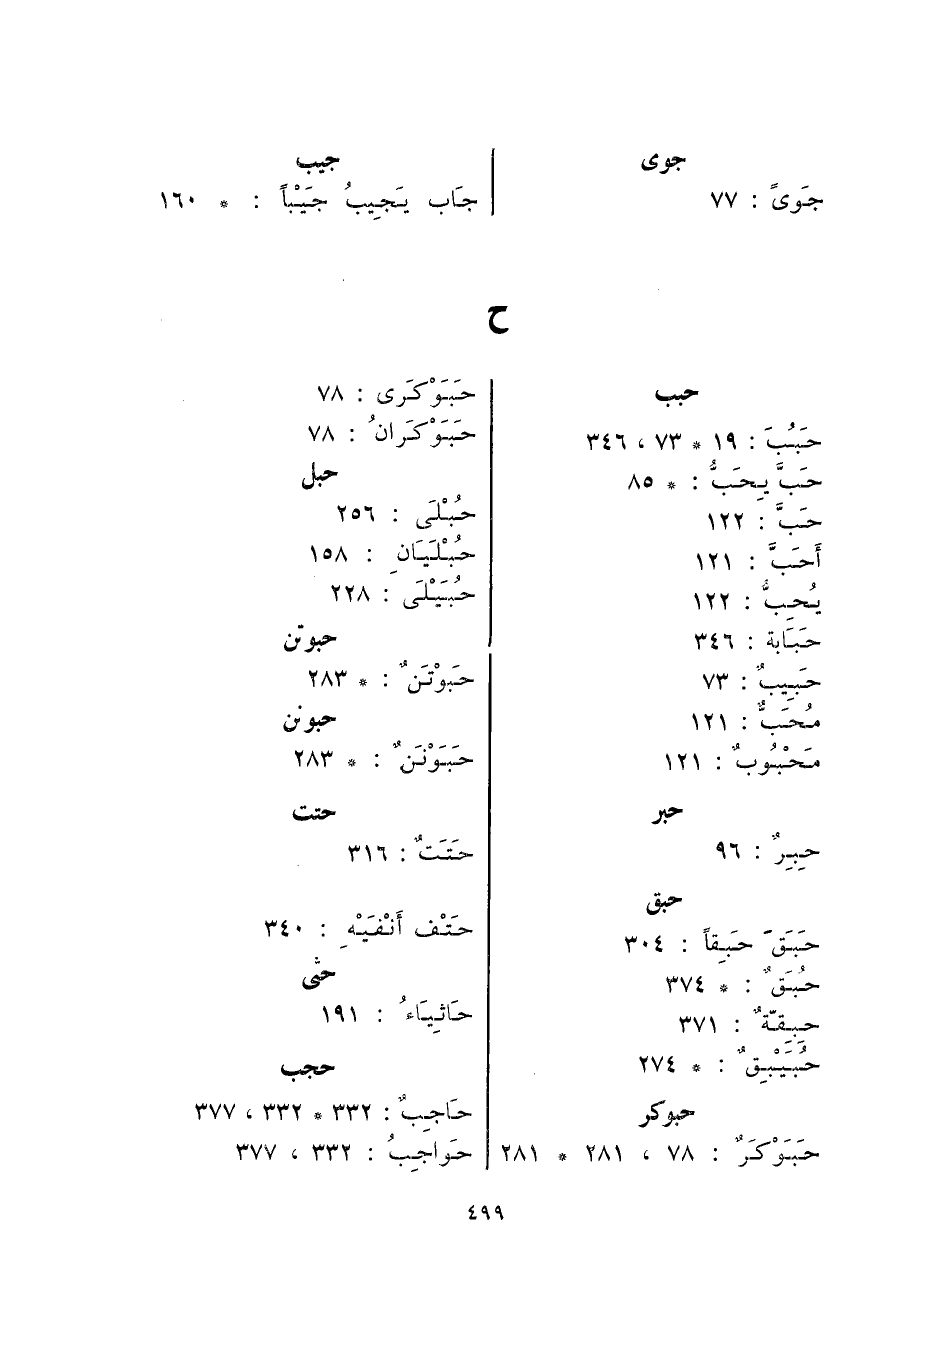 جوى
جَوىً : ٧٧
جيب
جَاب يَجِيبُ جَيْباً : * ١٦٠
ح
حبب
حَبُبَ : ١٩ * ٧٣ ، ٣٤٦
حَبَّ يِحَبُّ : * ٨٥
حَبَّ : ١٢٢
أَحَبَّ : ١٢١
يُحِبُّ : ١٢٢
حَبَابة : ٣٤٦
حَبِيبٌ : ٧٣
مُحَبٌّ : ١٢١
مَحْبُوبٌ : ١٢١
حبر
حِبِرٌ : ٩٦
حبق
حَبَقَ حَبِقاً : ٣٠٤
حُبَقٌ : * ٣٧٤
حبِقَّةٌ : ٣٧١
حُبَيْبِقٌ : * ٢٧٤
حبوكر
حَبَوْكَرٌ : ٧٨ ، ٢٨١ * ٢٨١
حَبَوْكَرى : ٧٨
حَبَوْكَرانُ : ٧٨
حبل
حُبْلَى : ٢٥٦
حُبْلَيَانِ : ١٥٨
حُبَيْلَى : ٢٢٨
حبوتن
حَبَوْتَنٌ : * ٢٨٣
حبونن
حَبَوْنَنٌ : * ٢٨٣
حتت
حَتَتٌ : ٣١٦
حَتْف أَنْفَيْهِ : ٣٤٠
حثى
حَاثِيَاءُ : ١٩١
حجب
حَاجِبٌ : ٣٣٢ * ٣٣٢ ، ٣٧٧
حَواجِبُ : ٣٣٢ ، ٣٧٧
٤٩٩